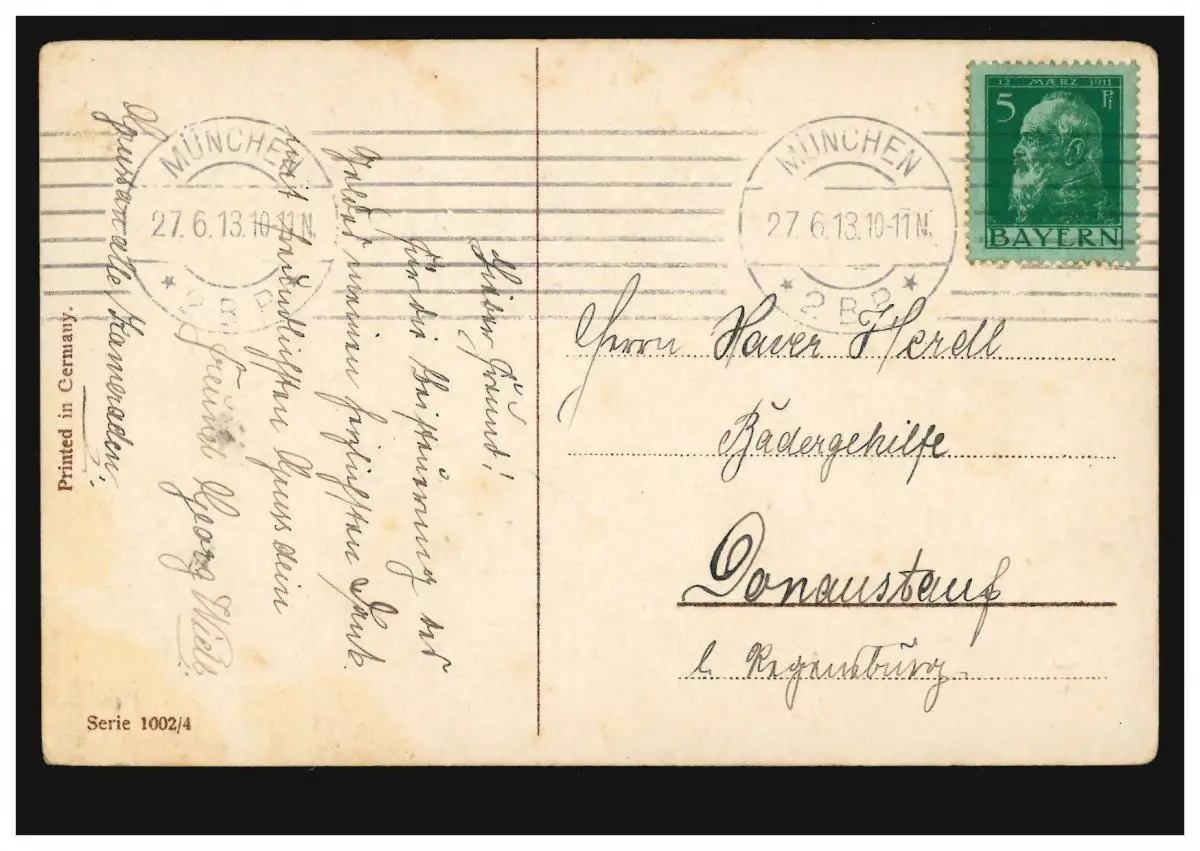 12 MÆRZ 1911
5 Pf
BAYERN
MÜNCHEN
27.6.13.10-11N.
* 2 B P *
MÜNCHEN
27.6.13.10-11N.
* 2 B P *
Herrn Xaver Herdl
Bädergehilfe
Donaustauf
b. Regensburg.
Lieber Freund!
Für die Beisteuerung des
Geldes meinen herzlichsten Dank.
Mit freundlichsten Gruss dein
Freund Georg Wiell.
Gruss an alle Kameraden.
Printed in Germany.
Serie 1002/4